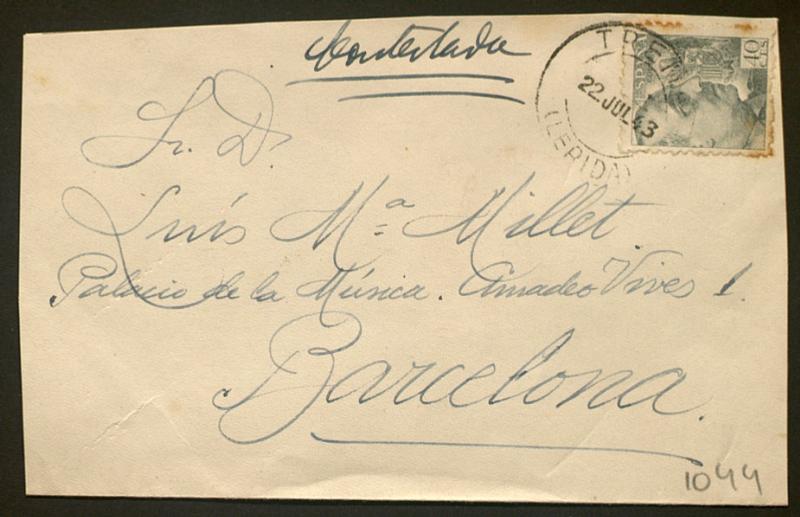 Contestada
TREM
22 JUL 43
(LERIDA)
ESPAÑA
40 CTS
Sr. D.
Luís Mª Millet
Palacio de la Música. Amadeo Vives 1.
Barcelona.
1044